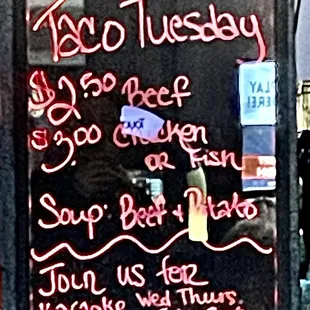 Taco Tuesday
$2.50 Beef
$3.00 Chicken
or Fish
Soup: Beef + Potato
Join us for
Karaoke Wed Thurs.